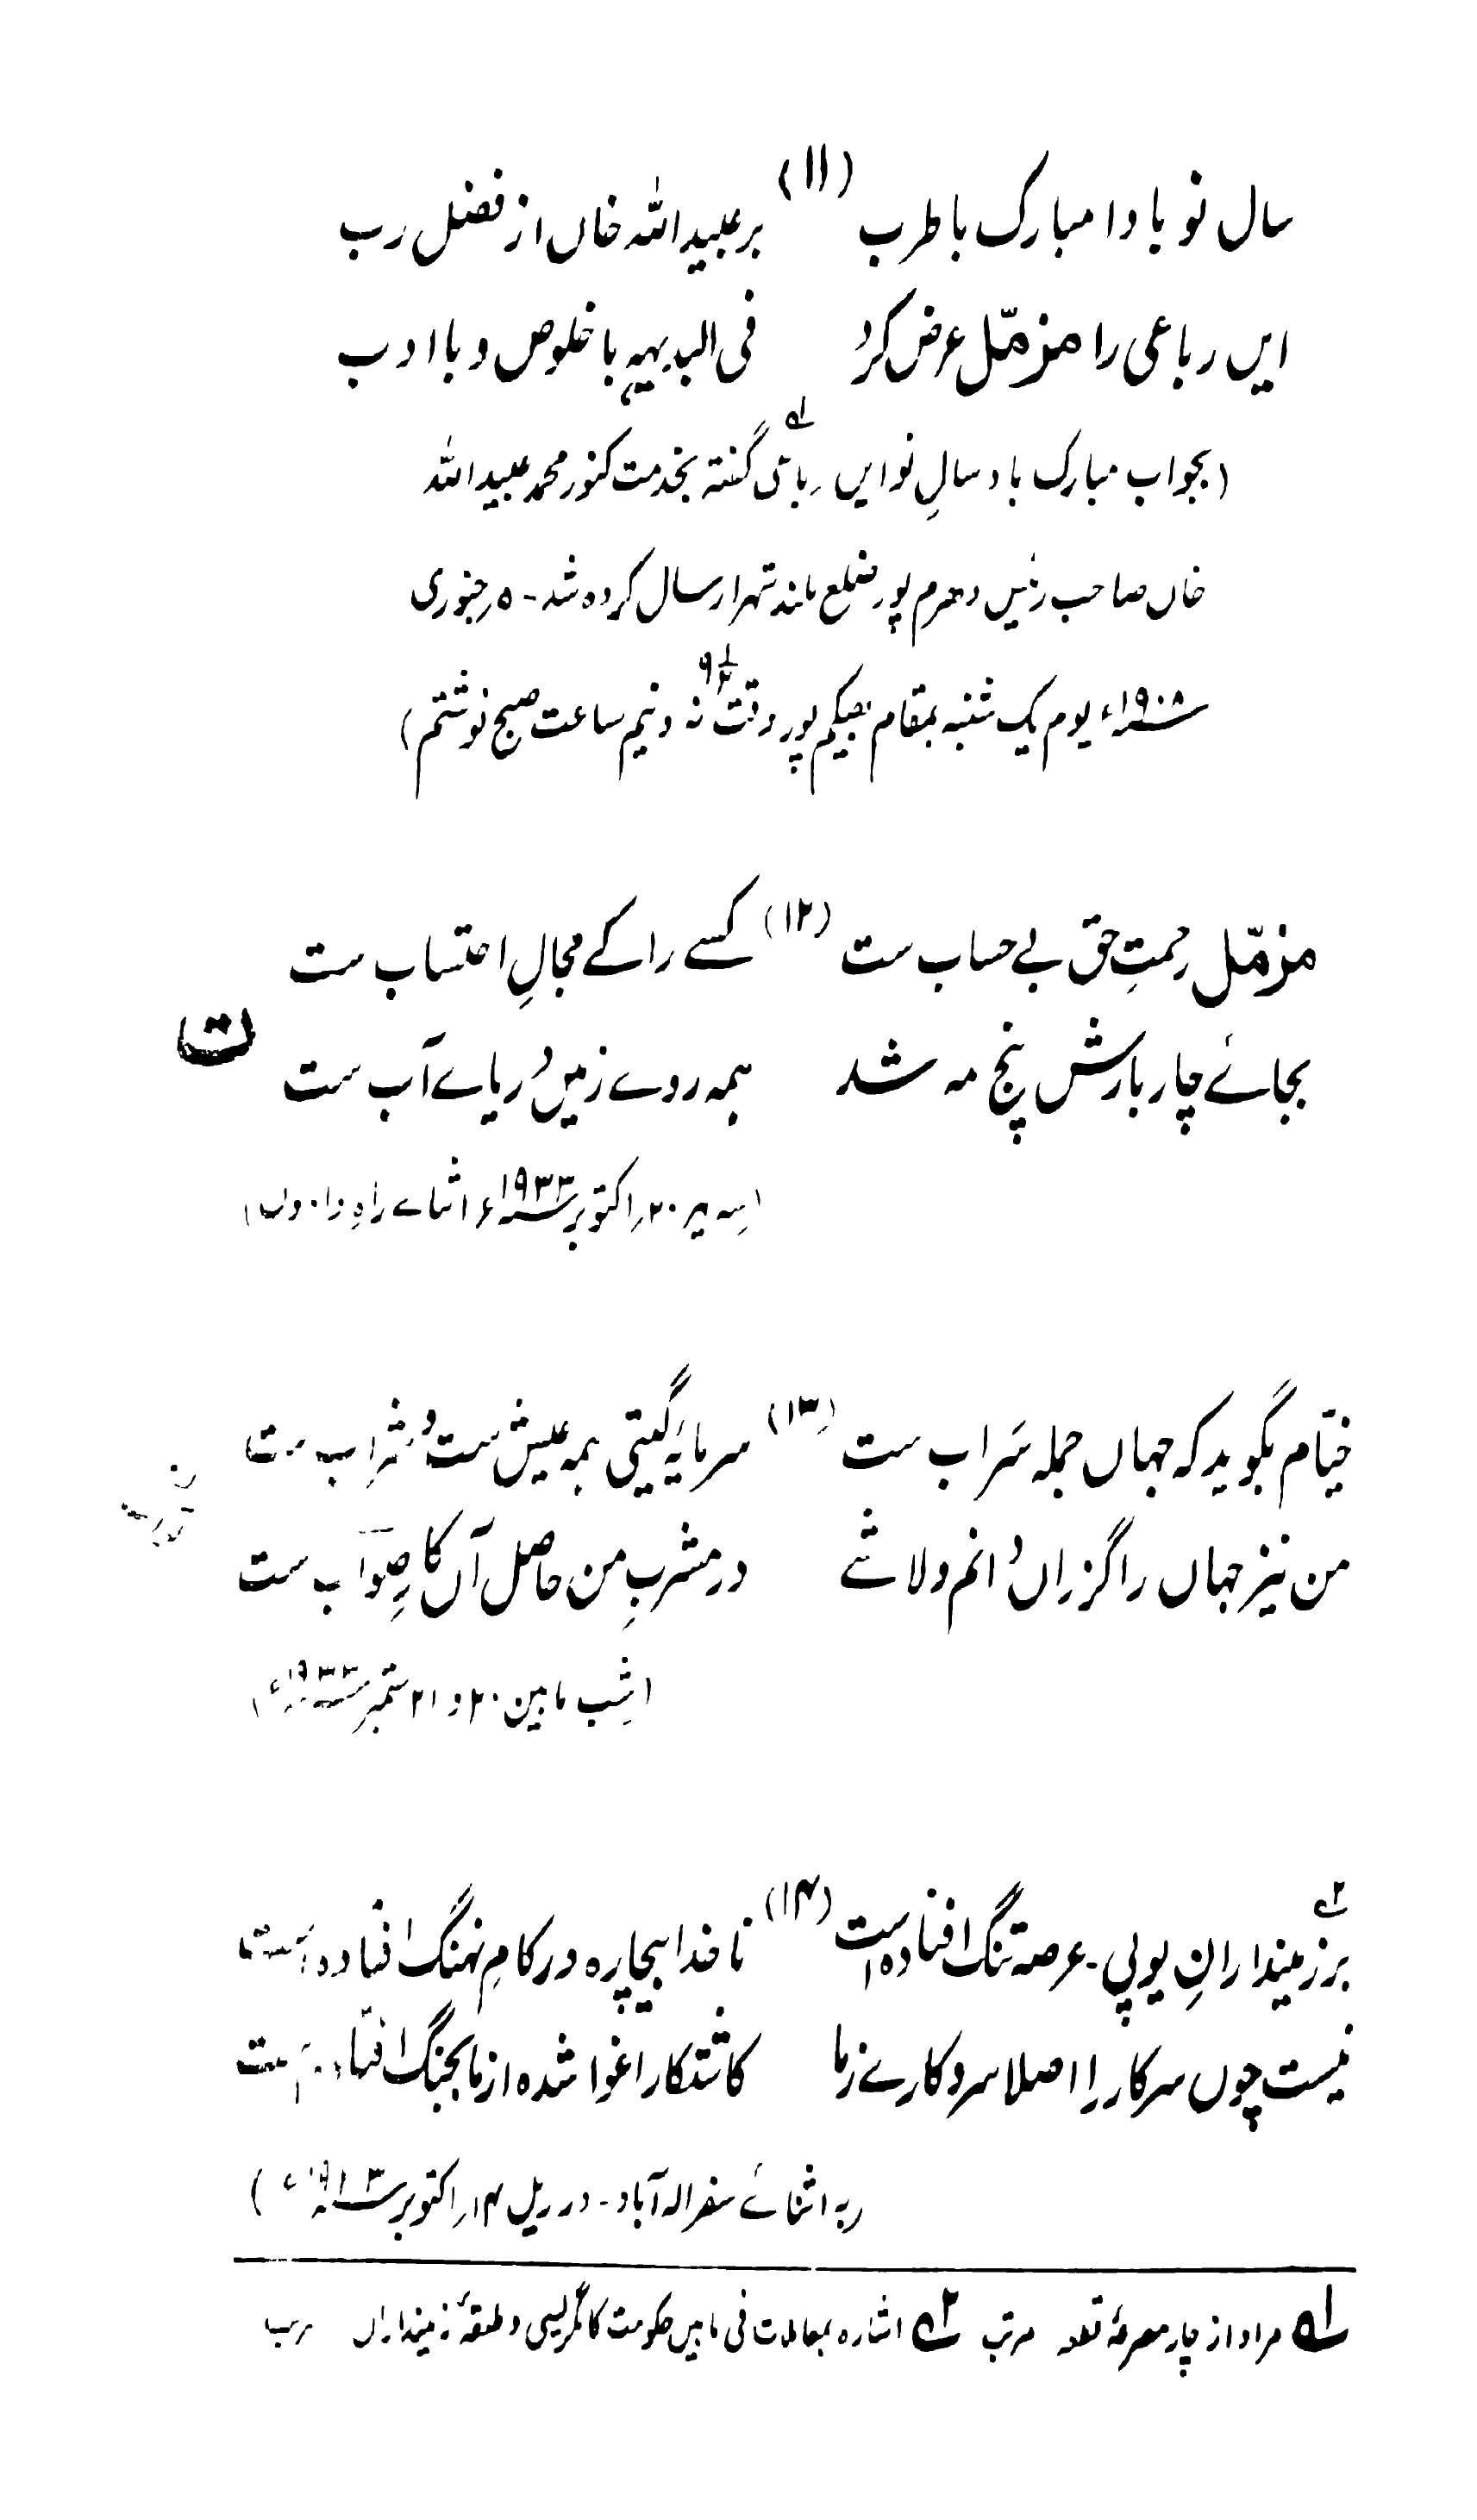 (۱۱)
سال نو بادا مبارک باطرب بر عبید اللہ خاں از فضل رب
ایں رباعی را مزمّل عرض کرد فی البدیہہ باخلوص و با ادب
(بجواب مبارک باد سالِ نو ایں رباعی گفتہ بخدمت کنور محمد عبید اللہ
خاں صاحب رئیس دھرم پور ضلع بلند شہر ارسال کردہ شد - ۵ ر جنوری
یوم یک شنبہ بمقام بھیکم پور وقت ۹ نہ و نیم ساعت صبح نوشتم)
(۱۲)
مزمّل رحمتِ حق بے حساب ست کسے را کے مجالِ احتساب ست
بجائے چار بارش پنج مہ شد ہمہ روے زمیں دریاے آب ست
ت
(سہ پہر ۲۰ ر اکتوبر ۱۹۳۳ء اثناے راہ)
(۱۳)
خیّام بگوید کہ جہاں جملہ سَراب ست سرمایۂ گیتی ہمہ عیش ست و شراب ست
من نیز جہاں را گزراں دانم و لاشے در مشربِ من حاصل آں کارِ صواب ست
(شب مابین ۲۰ و ۲۱ ستمبر)
(۱۴)
بر زمیندارانِ یوپی - عرصہ تنگ افتادہ است ناخدا بیچارہ در کامِ نہنگ افتادہ است
نیست چوں سرکار را اصلا سروکارے زما کاشتکار اغوا شدہ از ما بجنگ افتادہ است
(بہ اثنائے سفر الہ آباد - در ریل ۱۴ ر اکتوبر)
۱ مراد از چار مصرعۂ قطعہ مرتب ۲ اشارہ بمعاملات فی مابین حکومت کانگریسی و طبقۂ زمینداراں مرتب